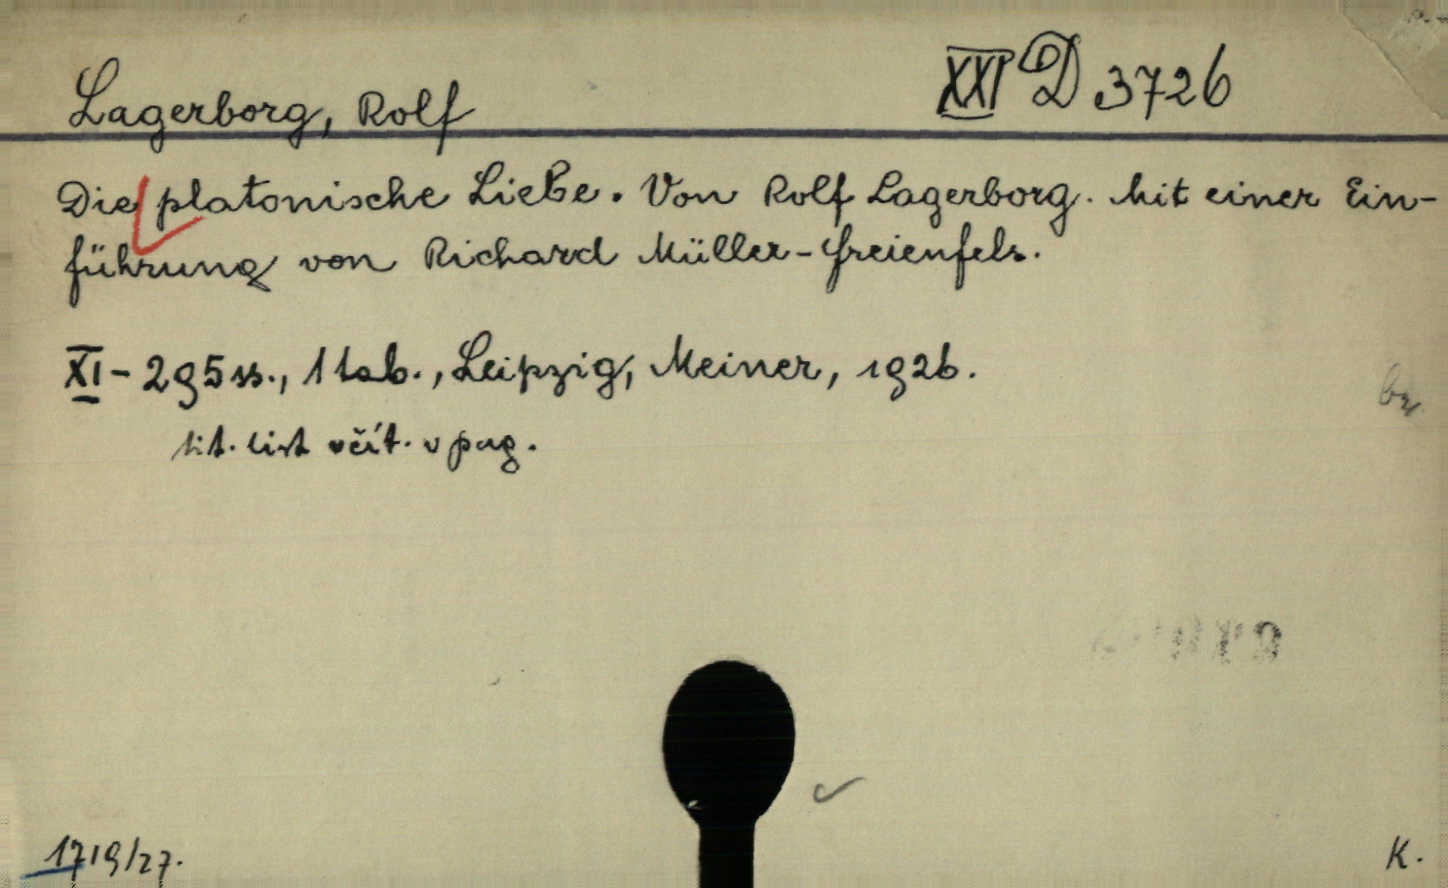 Lagerborg, Rolf
XXI D 3726
Die platonische Liebe. Von Rolf Lagerborg. Mit einer Ein-
führung von Richard Müller-Freienfels.
XI - 295 ss., 1 tab., Leipzig, Meiner, 1926.
tit. list včít. v pag.
1719/27.
K.